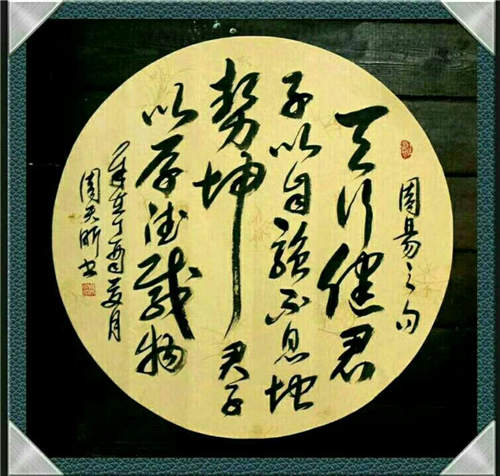 周易之句
天行健君
子以自強不息地
勢坤君子
以厚德載物
歲在丁酉夏月
周天書